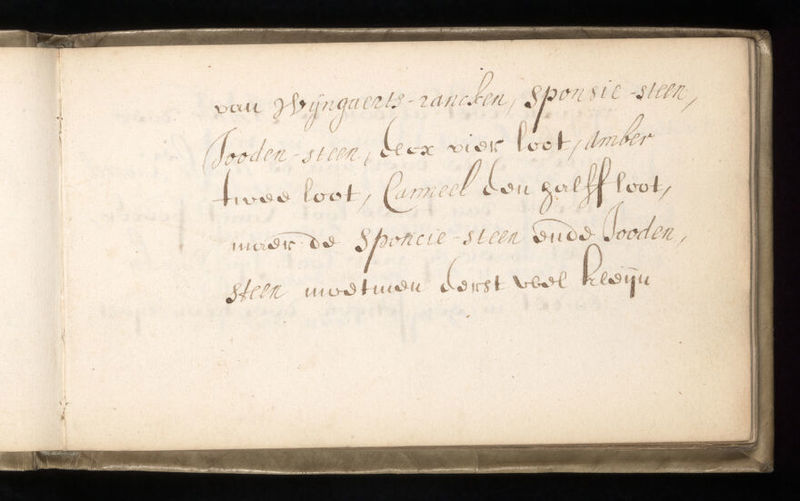 van Wijngaerts-rancken, Sponsie-steen,
Jooden-steen, elcx vier loot, Amber
twee loot, Canneel een half loot,
maer de Sponcie-steen ende Jooden,
steen moetmen eerst veel kleijn